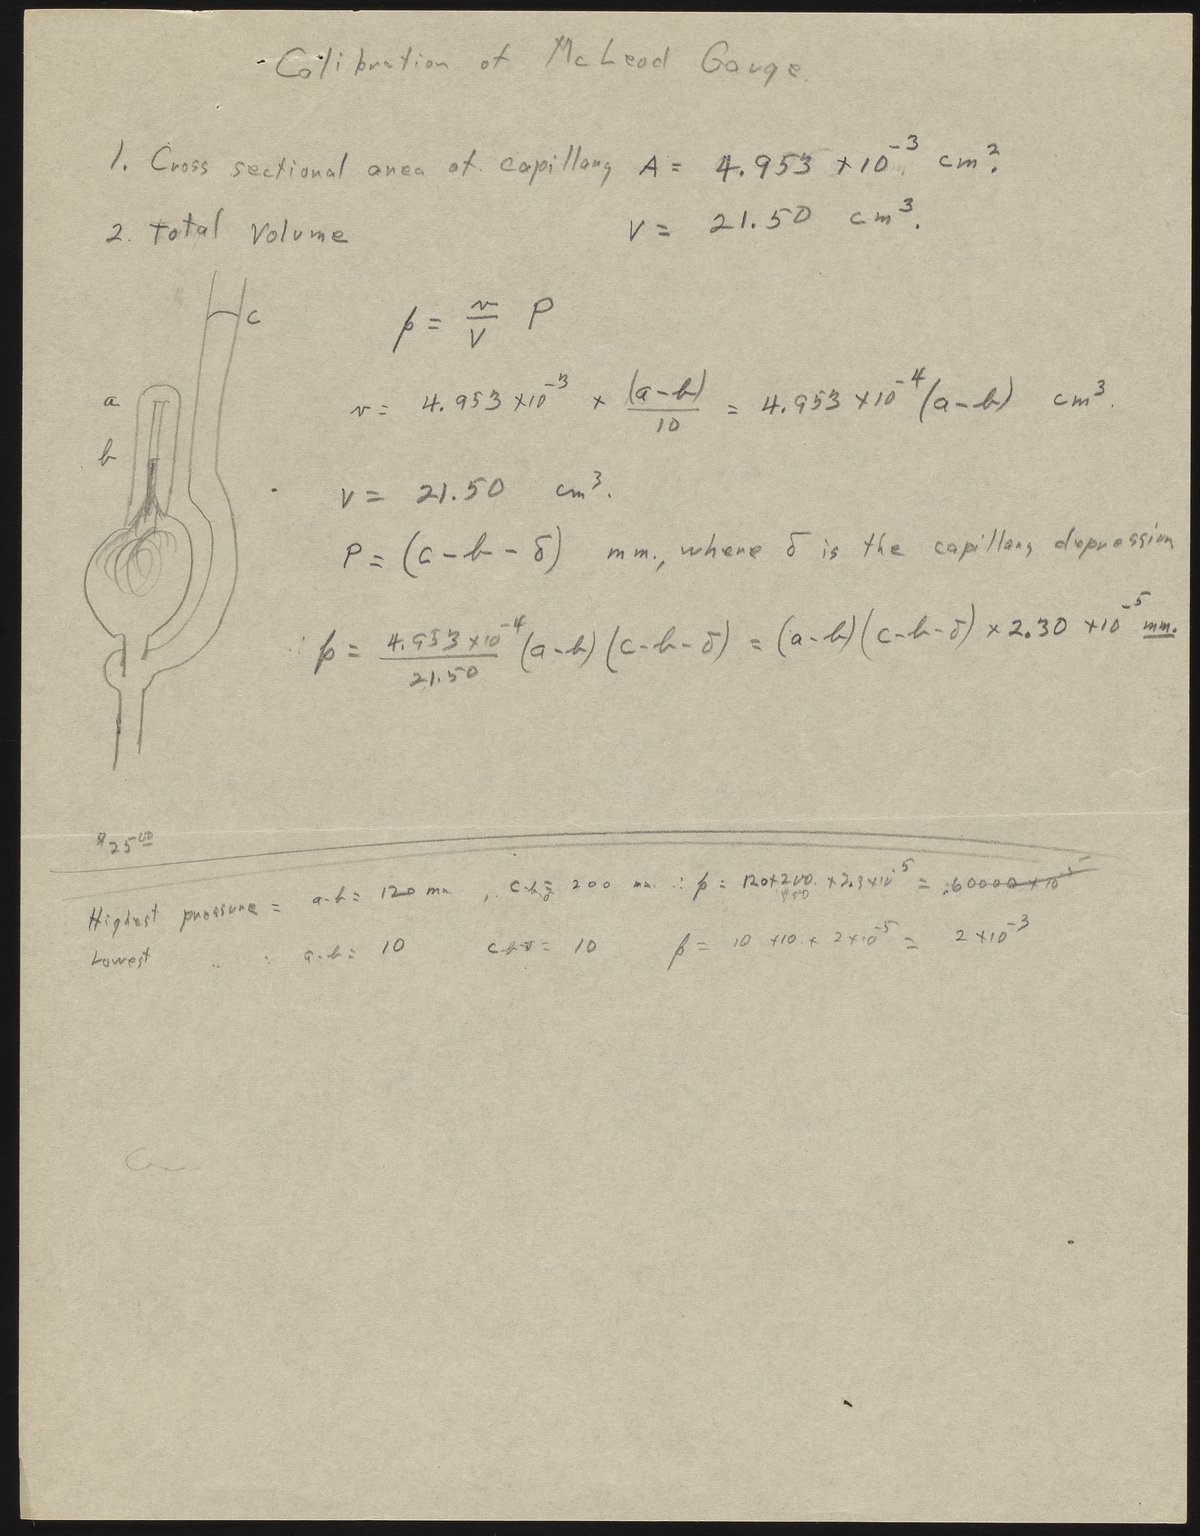 Calibration of McLeod Gauge.
1. Cross sectional area of capillary A = 4.953 × 10⁻³ cm².
2. Total Volume V = 21.50 cm³.
c
p = v/V P
a
v = 4.953 × 10⁻³ × (a-b)/10 = 4.953 × 10⁻⁴ (a-b) cm³.
b
V = 21.50 cm³.
P = (c-b-δ) mm., where δ is the capillary depression
∴ p = 4.953 × 10⁻⁴/21.50 (a-b) (c-b-δ) = (a-b) (c-b-δ) × 2.30 × 10⁻⁵ mm.
$25⁰⁰
Highest pressure = a-b = 120 mm, c-b-δ = 200 mm. ∴ p = 120 × 200 × 2.3 × 10⁻⁵ = .60000 × 10⁻⁵
Lowest " : a-b = 10 c-b-δ = 10 p = 10 × 10 × 2 × 10⁻⁵ = 2 × 10⁻³